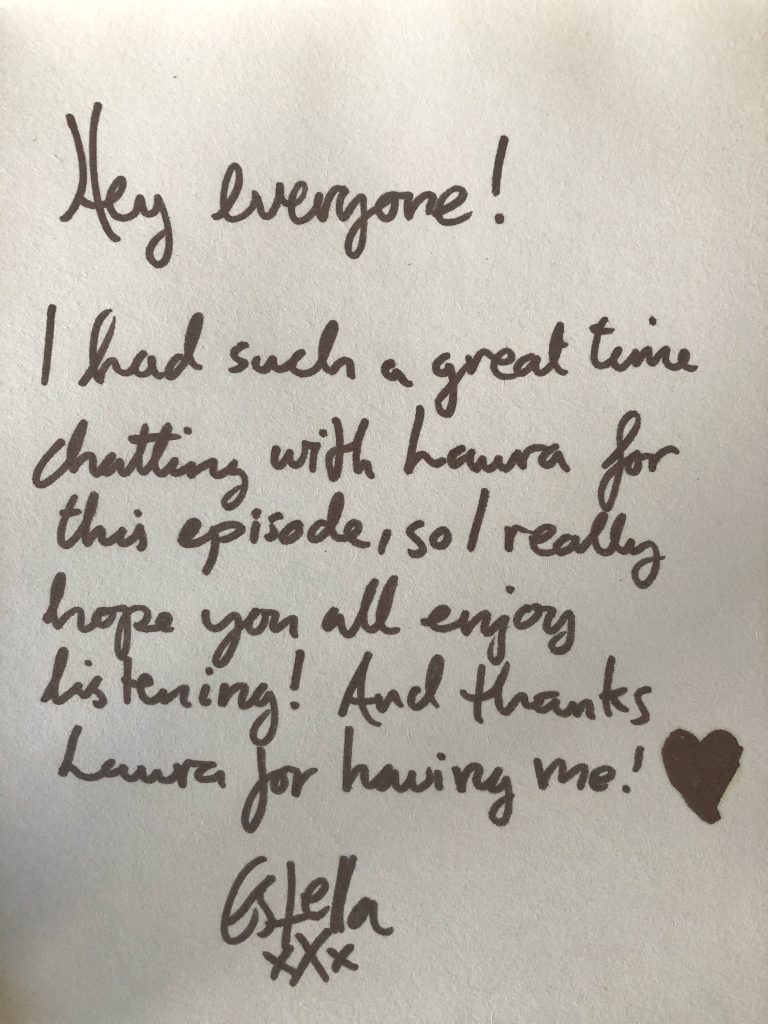 Hey everyone!
I had such a great time
chatting with Laura for
this episode, so I really
hope you all enjoy
listening! And thanks
Laura for having me!
Estella
xXx